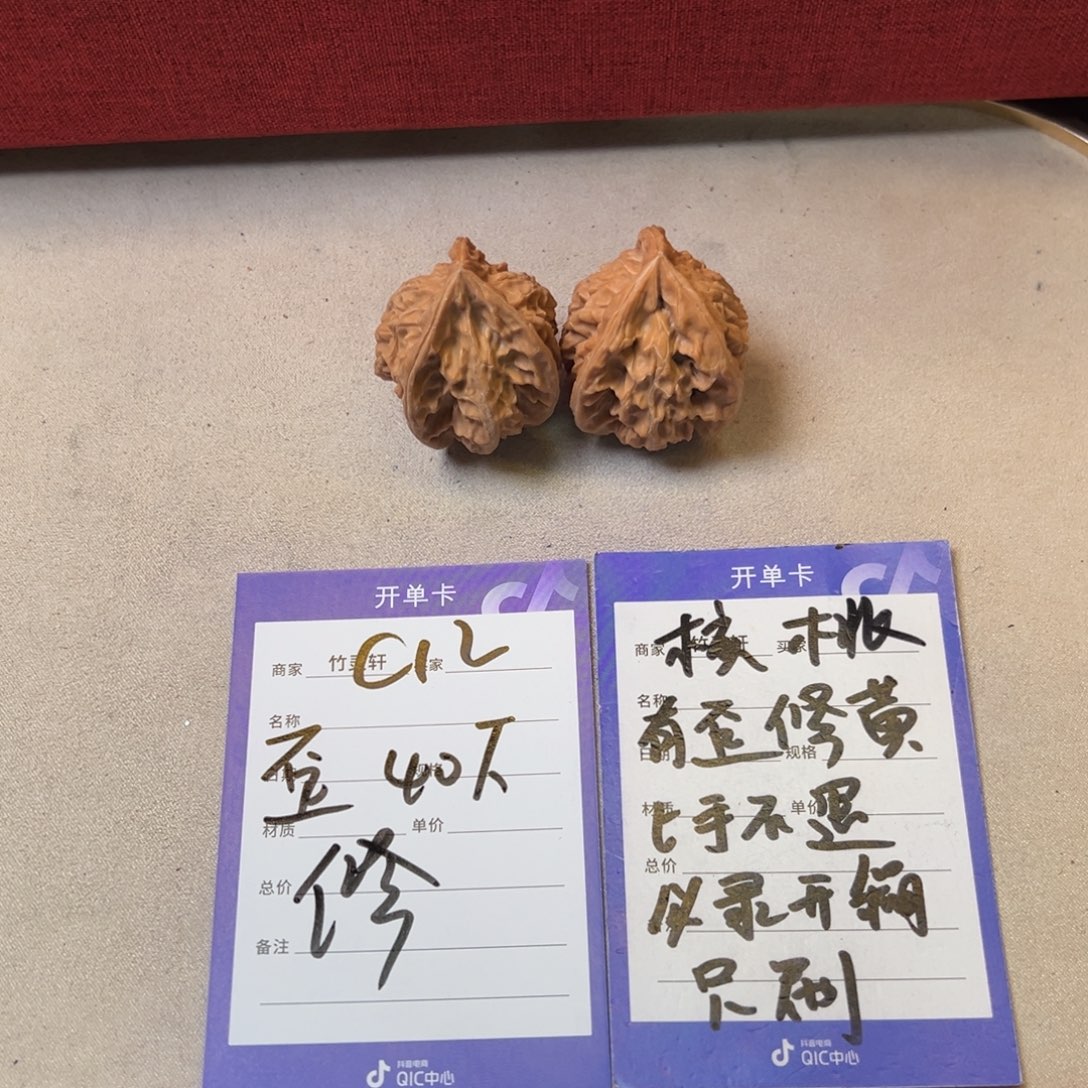 开单卡
商家 竹 轩 买家
C12
名称
歪 40下
日期 规格
材质 单价
修
总价
备注
抖音电商
QIC中心
开单卡
商家 竹 轩 买家
核桃
名称
有歪修黄
日期 规格
材质 单价
上手不退
总价
必录开
只刷
抖音电商
QIC中心